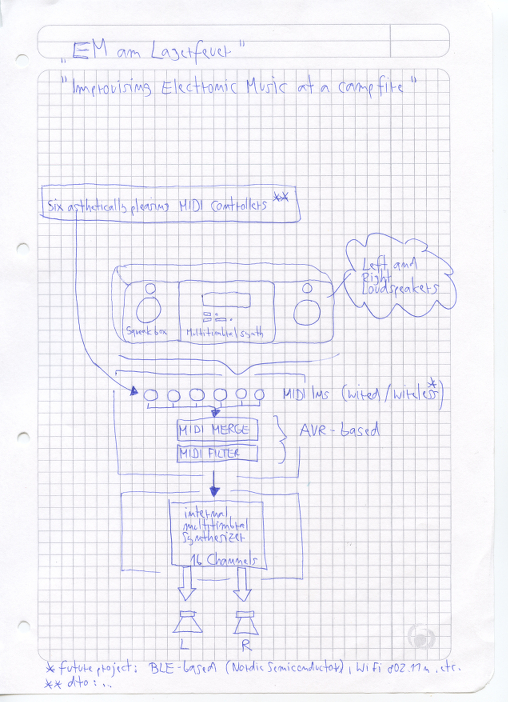 "EM am Lagerfeuer"
"Improvising Electronic Music at a campfire"
Six asthetically pleasing MIDI Controllers **
Left and
Right
Loudspeakers
Squeakbox
Multitimbral synth
MIDI Ins (wired/wireless*)
MIDI MERGE
MIDI FILTER
AVR-based
internal
multitimbral
synthesizer
16 Channels
L
R
* future project: BLE-based (Nordic Semiconductor), WiFi 802.11n, etc.
** dito: ...